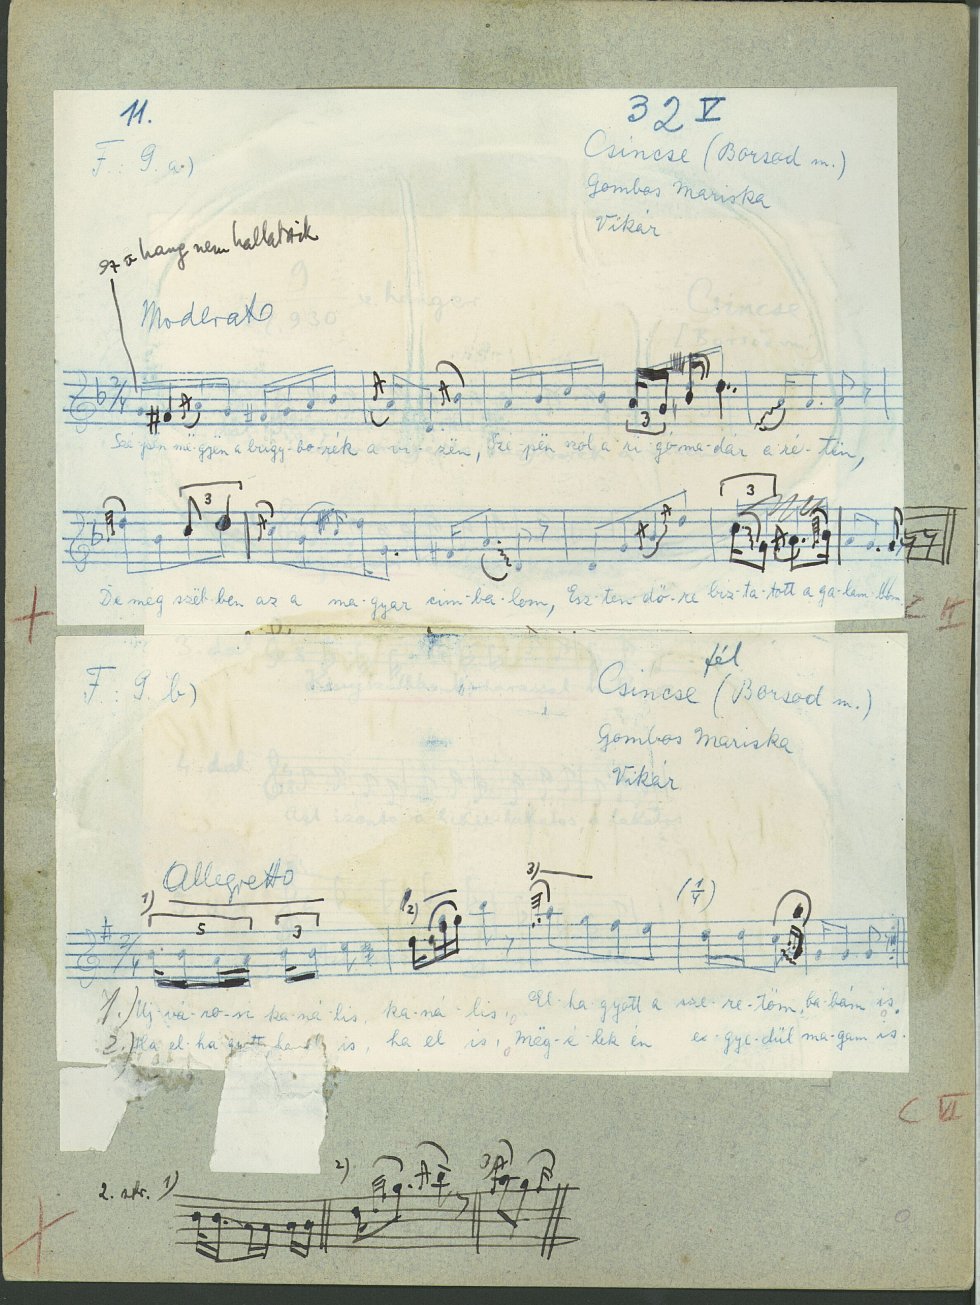 11.
32 V
F. 9. a.)
Csincse (Borsod m.)
Gombos Mariska
Vikár
ez a hang nem hallatszik
Moderato
2/4
3
Szé-pen më-gyën a buggy-bo-rék a vi-zën, Szé-pën szól a ri-gó-ma-dár a ré-tën,
3
3
De még szëb-ben az a ma-gyar cim-ba-lom, Esz-ten-dő-re biz-ta-tott a ga-lam-bom
Z II
F. 9. b)
fél
Csincse (Borsod m.)
Gombos Mariska
Vikár
Allegretto
1) 5 3 2) 3) (1/4)
2/4
1.) Uj-vá-ro-si ka-ná-lis, ka-ná-lis, El-ha-gyott a sze-re-töm, ba-bám is.
2.) Ha el-ha-gyott, is, ha el is, Mëg-é-lek én egye-dül ma-gam is.
C VI
2. str. 1) 2) 3)